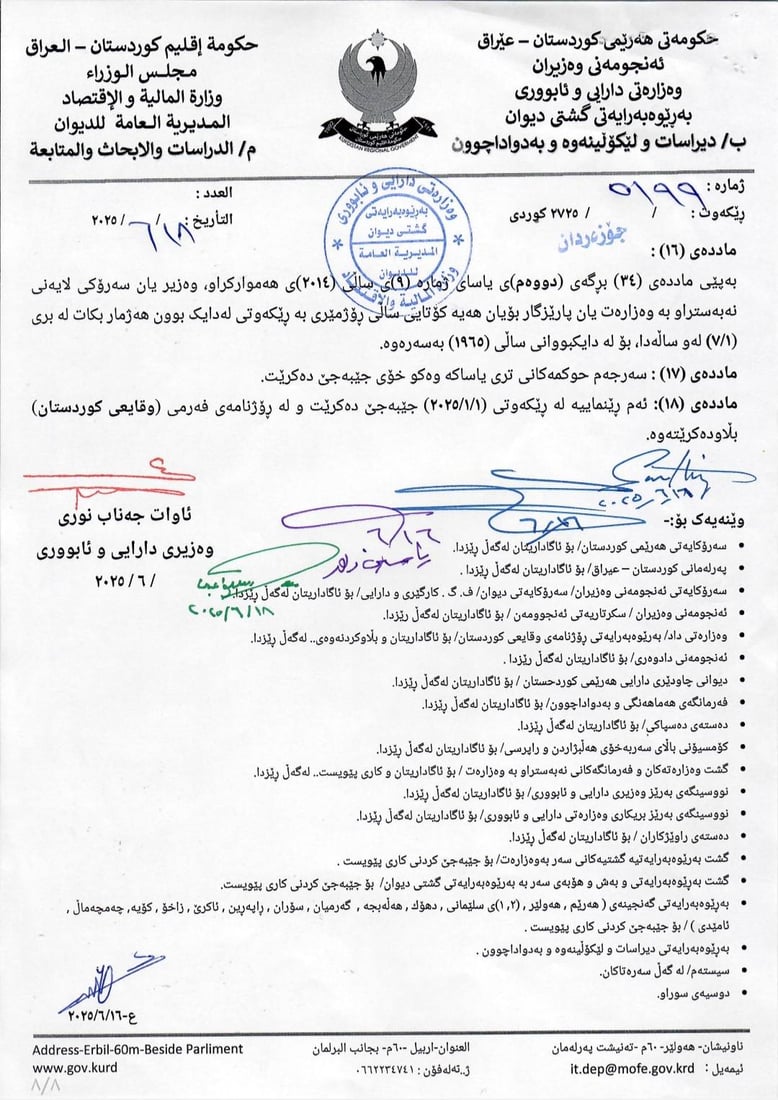 حکومەتی هەرێمی کوردستان – عێراق
ئەنجومەنی وەزیران
وەزارەتی دارایی و ئابووری
بەڕێوەبەرایەتی گشتی دیوان
ب/ دیراسات و لێکۆڵینەوە و بەدواداچوون
حكومة إقليم كوردستان – العراق
مجلس الوزراء
وزارة المالية و الإقتصاد
المديرية العامة للديوان
م/ الدراسات والابحاث والمتابعة
KURDISTAN REGIONAL GOVERNMENT
ژمارە : ٥١٩٩
العدد :
ڕێکەوت : / / ٢٧٢٥ کوردی
جۆزەردان
التأريخ : ١٨ / ٦ / ٢٠٢٥
وەزارەتی دارایی و ئابووری
بەڕێوبەرایەتی
گشتی دیوان
المديرية العامة
للديوان
وزارة المالية والاقتصاد
ماددەی (١٦) :
بەپێی ماددەی (٣٤) برگەی (دووەم)ی یاسای ژمارە (٩)ی ساڵی (٢٠١٤)ی هەموارکراو، وەزیر یان سەرۆکی لایەنی
نەبەستراو بە وەزارەت یان پارێزگار بۆیان هەیە کۆتایی ساڵی ڕۆژمێری بە ڕێکەوتی لەدایک بوون هەژمار بکات لە بری
(٧/١) لەو ساڵەدا، بۆ لە دایکبووانی ساڵی (١٩٦٥) بەسەرەوە.
ماددەی (١٧) : سەرجەم حوکمەکانی تری یاساکە وەکو خۆی جێبەجێ دەکرێت.
ماددەی (١٨): ئەم ڕێنماییە لە ڕێکەوتی (٢٠٢٥/١/١) جێبەجێ دەکرێت و لە ڕۆژنامەی فەرمی (وقایعی کوردستان)
بڵاودەکرێتەوە.
٢٠٢٥/٦/١٨
ئاوات جەناب نوری
وەزیری دارایی و ئابووری
/ ٦ / ٢٠٢٥
٦/١٦
٢٠٢٥/٦/١٨
وێنەیەک بۆ:-
• سەرۆکایەتی هەرێمی کوردستان/ بۆ ئاگاداریتان لەگەڵ ڕێزدا.
• پەرلەمانی کوردستان – عیراق/ بۆ ئاگاداریتان لەگەڵ ڕێزدا .
• سەرۆکایەتی ئەنجوومەنی وەزیران/ سەرۆکایەتی دیوان/ ف. گ. کارگێری و دارایی/ بۆ ئاگاداریتان لەگەڵ ڕێزدا.
• ئەنجومەنی وەزیران / سکرتاریەتی ئەنجوومەن / بۆ ئاگاداریتان لەگەڵ ڕێزدا.
• وەزارەتی داد/ بەڕێوەبەرایەتی ڕۆژنامەی وقایعی کوردستان/ بۆ ئاگاداریتان و بڵاوکردنەوەی.. لەگەڵ ڕێزدا.
• ئەنجومەنی دادوەری/ بۆ ئاگاداریتان لەگەڵ ڕێزدا .
• دیوانی چاودێری دارایی هەرێمی کوردحستان / بۆ ئاگاداریتان لەگەڵ ڕێزدا.
• فەرمانگەی هەماهەنگی و بەدواداچوون/ بۆ ئاگاداریتان لەگەڵ ڕێزدا.
• دەستەی دەسپاکی/ بۆ ئاگاداریتان لەگەڵ ڕێزدا.
• کۆمسیۆنی باڵای سەربەخۆی هەڵبژاردن و راپرسی/ بۆ ئاگاداریتان لەگەڵ ڕێزدا.
• گشت وەزارەتەکان و فەرمانگەکانی نەبەستراو بە وەزارەت / بۆ ئاگاداریتان و کاری پێویست.. لەگەڵ ڕێزدا.
• نووسینگەی بەرێز وەزیری دارایی و ئابووری/ بۆ ئاگاداریتان لەگەڵ ڕێزدا.
• نووسینگەی بەرێز بریکاری وەزارەتی دارایی و ئابووری/ بۆ ئاگاداریتان لەگەڵ ڕێزدا.
• دەستەی راوێژکاران / بۆ ئاگاداریتان لەگەڵ ڕێزدا.
• گشت بەڕێوەبەرایەتیە گشتیەکانی سەر بەوەزارەت/ بۆ جێبەجێ کردنی کاری پێویست .
• گشت بەڕێوەبەرایەتی و بەش و هۆبەی سەر بە بەڕێوەبەرایەتی گشتی دیوان/ بۆ جێبەجێ کردنی کاری پێویست.
• بەڕێوەبەرایەتی گەنجینەی ( هەرێم , هەولێر , (١,٢)ی سلێمانی , دهۆک , هەڵەبجە , گەرمیان , سۆران , ڕاپەرین , ئاکرێ , زاخۆ , کۆیە , چەمچەماڵ ,
ئامێدی ) / بۆ جێبەجێ کردنی کاری پێویست .
• بەڕێوەبەرایەتی دیراسات و لێکۆڵینەوە و بەدواداچوون .
• سیستەم/ لە گەڵ سەرەتاکان.
• دوسیەی سوراو.
ع-٢٠٢٥/٦/١٦
ناونیشان- هەولێر- ٦٠م -تەنیشت پەرلەمان
ئیمەیل : it.dep@mofe.gov.krd
العنوان-اربيل -٦٠م- بجانب البرلمان
ژ..تەلەفۆن : ٠٦٦٢٢٣٤٧٤١
Address-Erbil-60m-Beside Parliment
www.gov.kurd
٨/٨